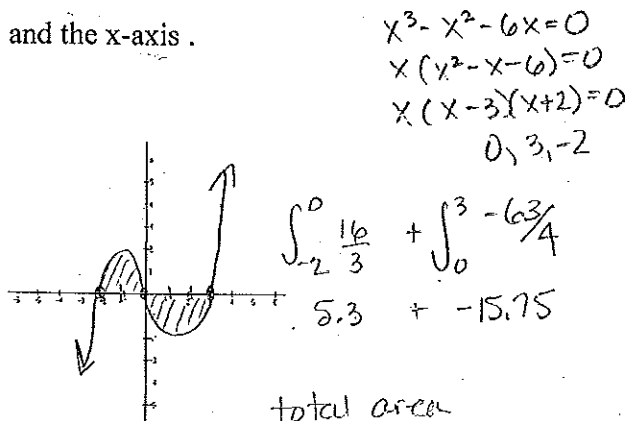 and the x-axis.
x³ - x² - 6x = 0
x(x² - x - 6) = 0
x(x - 3)(x + 2) = 0
0, 3, -2
∫₋₂⁰ 16/3 + ∫₀³ -63/4
5.3 + -15.75
total area